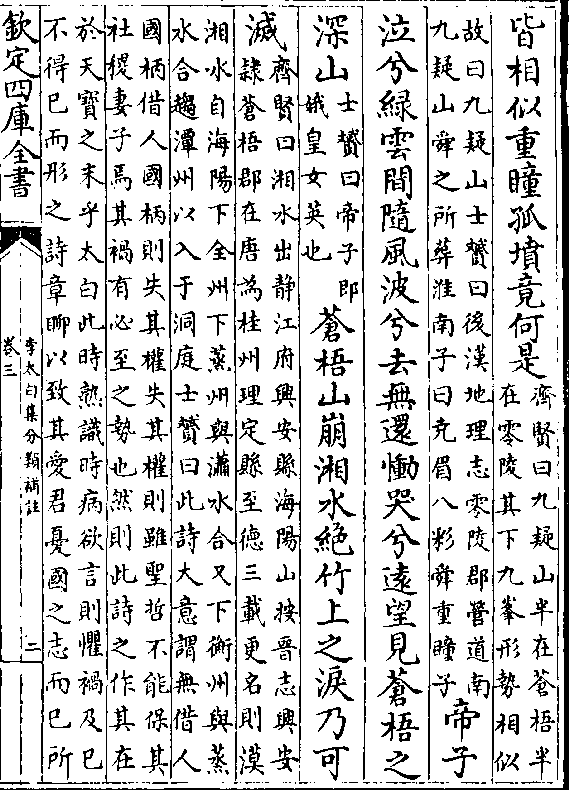 皆相似重瞳孤墳竟何是齊賢曰九疑山半在蒼梧半
在零陵其下九峯形勢相似
故曰九疑山士贇曰後漢地理志零陵郡營道南
九疑山舜之所葬淮南子曰堯眉八彩舜重瞳子帝子
泣兮綠雲間隨風波兮去無還慟哭兮遠望見蒼梧之
深山士贇曰帝子即
娥皇女英也蒼梧山崩湘水絶竹上之淚乃可
滅齊賢曰湘水出静江府興安縣海陽山按晉志興安
隷蒼梧郡在唐為桂州理定縣至德三載更名則漠
湘水自海陽下全州下蒸州與瀟水合又下衡州與蒸
水合趨潭州以入于洞庭士贇曰此詩大意謂無借人
國柄借人國柄則失其權失其權則雖聖哲不能保其
社稷妻子焉其禍有必至之勢也然則此詩之作其在
於天寶之末乎太白此時熟識時病欲言則懼禍及已
不得已而形之詩章聊以致其愛君憂國之志而已所
欽定四庫全書
李太白集分類補註
卷三
二